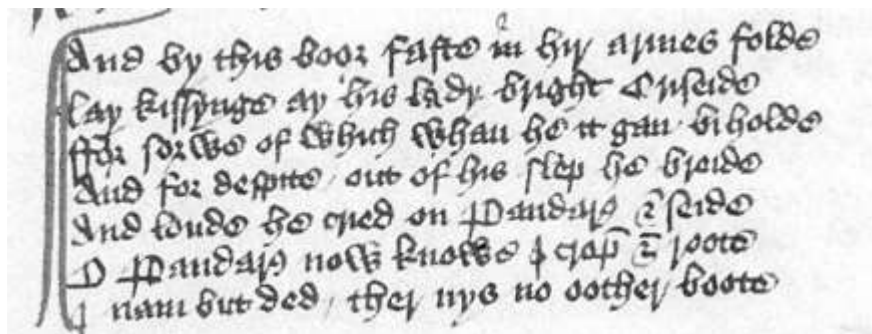 And by this boor faste in hir armes folde
Lay kissynge ay his lady bright Criseide
ffor sorwe of which whan he it gan biholde
And for despite / out of his slep he breide
And loude he cried on Pandarꝰ & seide
O Pandarꝰ now knowe I crop & roote
I nam but ded / ther nys no oother boote